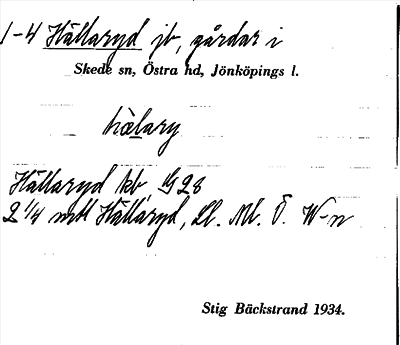 1-4 Hällaryd jb, gårdar i
Skede sn, Östra hd, Jönköpings l.
hälary
Hällaryd kb G28
2 1/4 mtl Hällaryd, Ll. Ml. Ö. W-n
Stig Bäckstrand 1934.